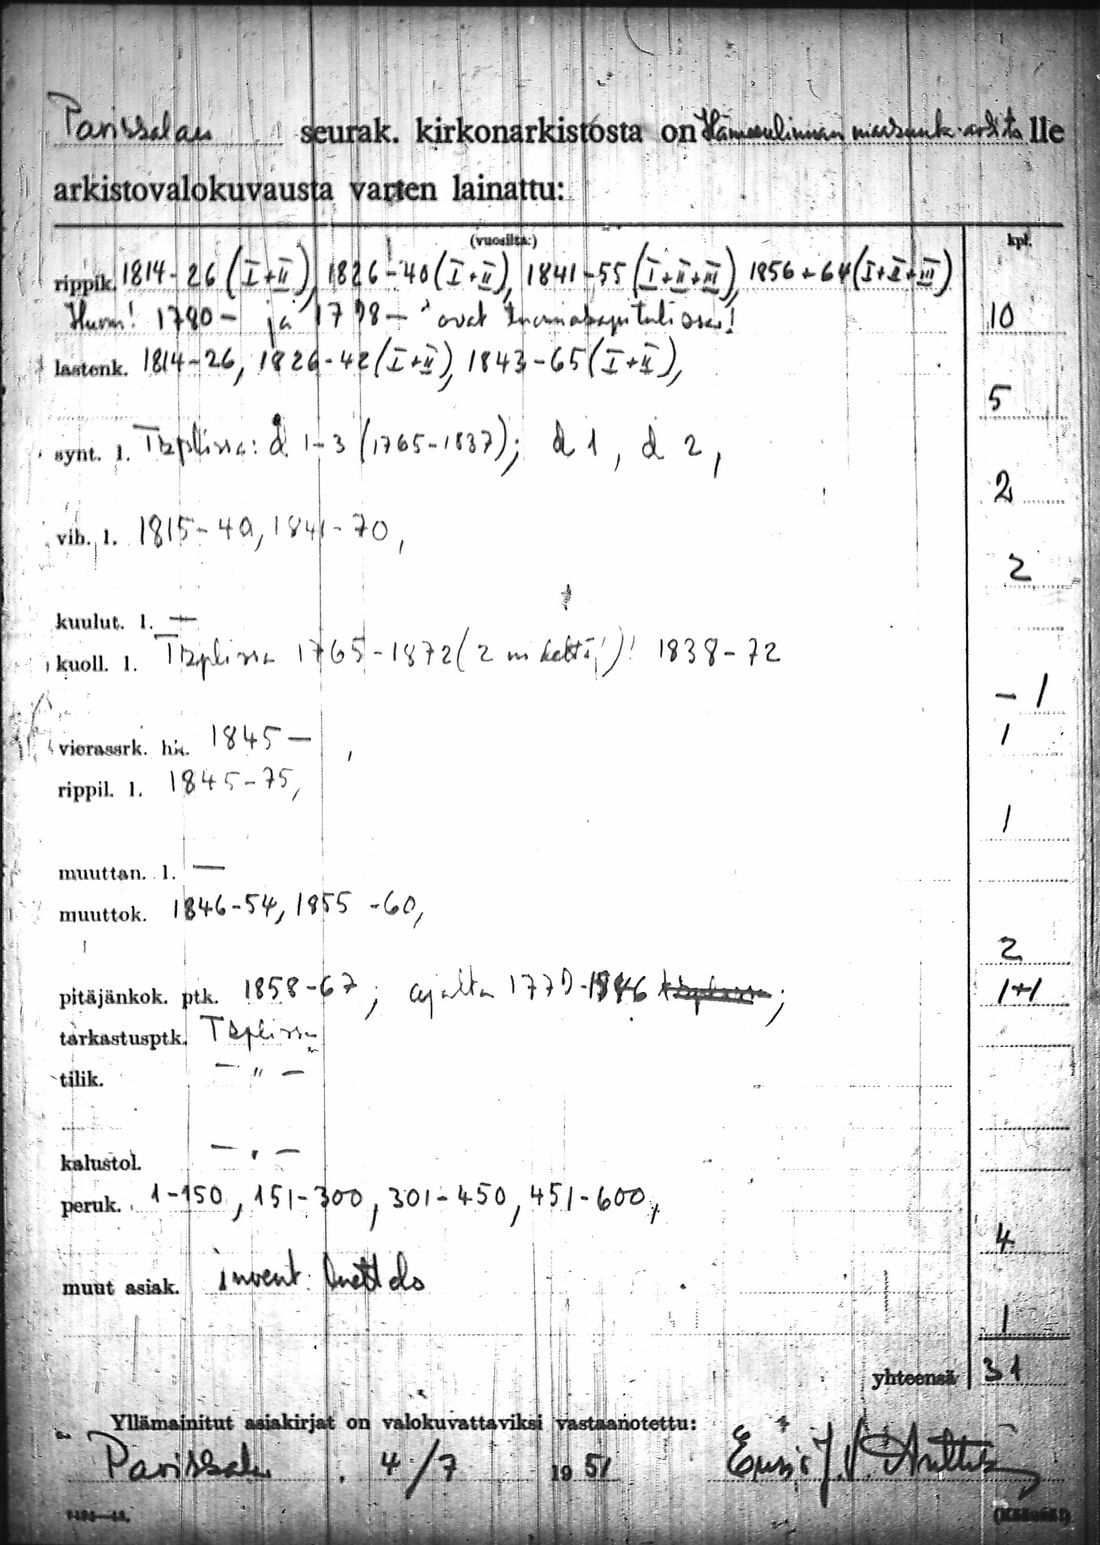 Parikkalan seurak. kirkonarkistosta on Hämeenlinnan maakunta-ark:ta lle
arkistovalokuvausta varten lainattu:
(vuosilta:) kpl.
rippik. 1814-26 (I+II), 1826-40 (I+II), 1841-55 (I+II+III), 1856-64 (I+II+III)
Huom! 1780- ja 1798- ovat tuomiokapitulissa! 10
lastenk. 1814-26, 1826-42 (I+II), 1843-65 (I+II),
5
synt. l. Tkplissa: d 1-3 (1765-1837); d 1, d 2,
2
vih. l. 1815-40, 1841-70,
2
kuulut. l. —
kuoll. l. Tkplissa 1765-1872 (2 )! 1838-72
- 1
vierassrk. hk. 1845- , 1
rippil. l. 1845-75,
1
muuttan. l. —
muuttok. 1846-54, 1855-60,
2
pitäjänkok. ptk. 1858-67; ajalta 1779-1846 ; 1+1
tarkastusptk. Tkplissa
tilik. — " —
kalustol. — " —
peruk. 1-150, 151-300, 301-450, 451-600,
4
muut asiak. invent. luettelo
1
yhteensä 31
Yllämainitut asiakirjat on valokuvattaviksi vastaanotettu:
Parikkala 4/7 1951